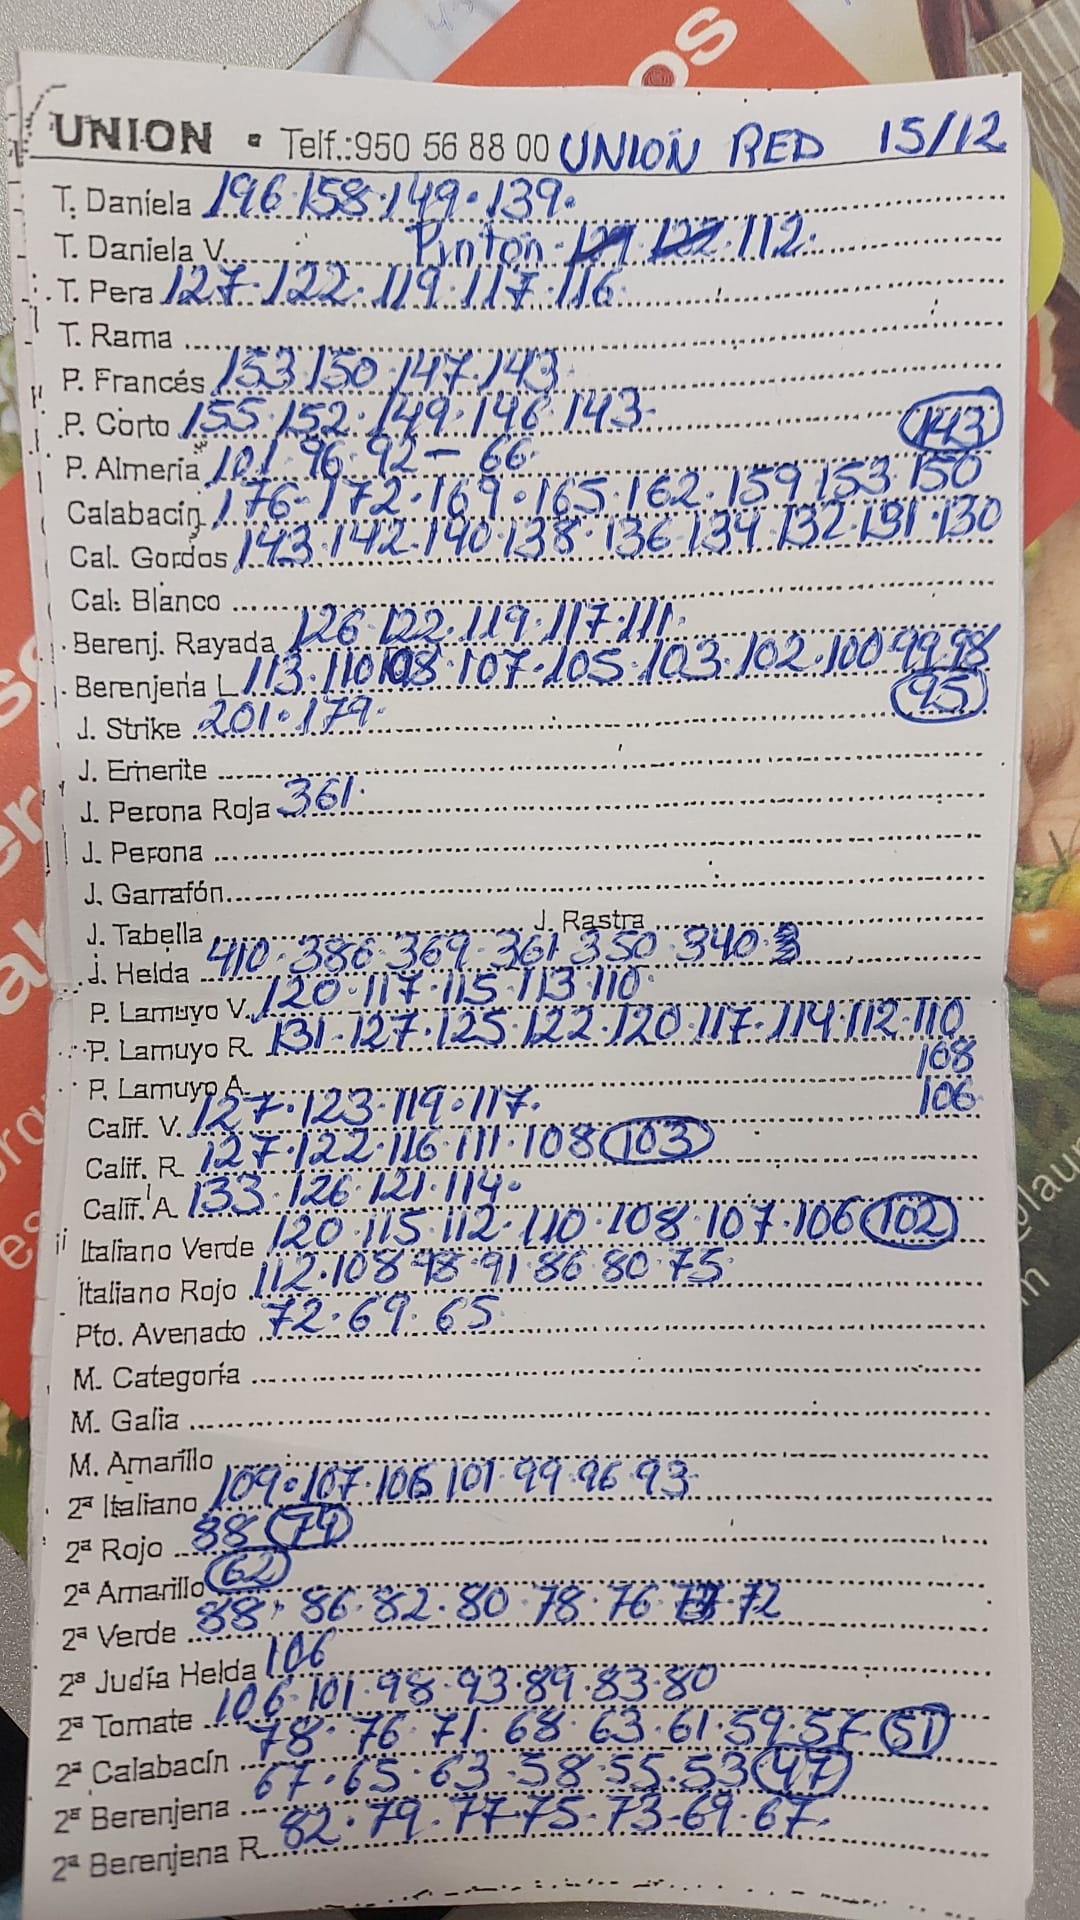 UNION • Telf.:950 56 88 00 UNION RED 15/12
T. Daniela 196·158·149·139·
T. Daniela V. Pinton 112·
T. Pera 127·122·119·117·116·
T. Rama
P. Francés 153 150 147·143·
P. Corto 155·152·149·146·143· 143
P. Almería 101·96·92— 66·
Calabacín 176·172·169·165·162·159 153·150
Cal. Gordos 143·142·140·138·136·134·132·131·130
Cal. Blanco
Berenj. Rayada 126·122·119·117·111·
Berenjena L 113·110 108·107·105·103·102·100 99 98
J. Strike 201·179· 95
J. Emerite
J. Perona Roja 361·
J. Perona
J. Garrafón
J. Tabella J. Rastra
J. Helda 410·386·369·361 350·340·
P. Lamuyo V. 120·117·115·113·110·
P. Lamuyo R. 131·127·125·122·120·117·114·112·110
108
P. Lamuyo A. 106
Calif. V. 127·123·119·117·
Calif. R. 127·122·116·111·108 103
Calif. A. 133·126·121·114·
Italiano Verde 120·115·112·110·108·107·106 102
Italiano Rojo 112·108 98·91·86·80·75·
Pto. Avenado 72·69·65·
M. Categoría
M. Galia
M. Amarillo
2ª Italiano 109·107·106 101·99·96·93·
2ª Rojo 88
2ª Amarillo 62
2ª Verde 88·86·82·80·78·76 72
2ª Judía Helda 106
2ª Tomate 106·101·98·93·89·83·80
2ª Calabacín 78·76·71·68·63·61·59·57 51
2ª Berenjena 67·65·63·58·55·53 47
2ª Berenjena R. 82·79·77·75·73·69·67·